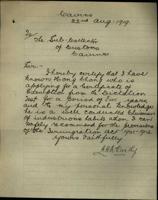 Cairns
22nd Aug: 1919.
To
The Sub-Collector
of Customs
Cairns
Sir:-
I hereby certify that I have
known Wong Chong who is
applying for a Certificate of
Exemption from the Dictation
Test for a period of five years
and to my personal knowledge
he is a well conducted Chinaman
of industrious habits whom I can
safely recommend for the provisions
of the Immigration Act 1901-
Yours Faithfully